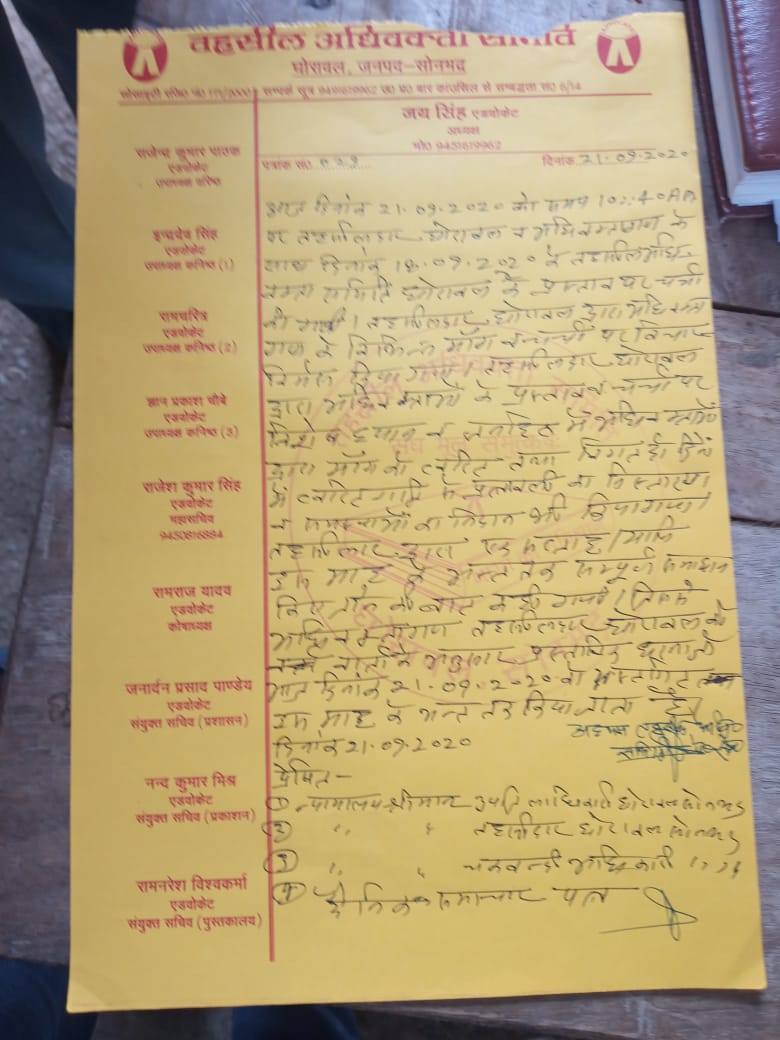 तहसील अधिवक्ता समिति
घोरावल, जनपद-सोनभद्र
सोसाइटी रजि० नं० सम्पर्क सूत्र 9451619962 उ० प्र० बार काउंसिल से सम्बद्धता सं० 6/14
जय सिंह एडवोकेट
अध्यक्ष
मो० 9451619962
पत्रांक सं०
दिनांक 21.09.2020
राजेन्द्र कुमार पाठक
एडवोकेट
उपाध्यक्ष वरिष्ठ
इन्द्रदेव सिंह
एडवोकेट
उपाध्यक्ष कनिष्ठ (1)
रामचरित्र
एडवोकेट
उपाध्यक्ष कनिष्ठ (2)
ज्ञान प्रकाश चौबे
एडवोकेट
उपाध्यक्ष कनिष्ठ (3)
राजेश कुमार सिंह
एडवोकेट
महासचिव
9450816884
रामराज यादव
एडवोकेट
कोषाध्यक्ष
जनार्दन प्रसाद पाण्डेय
एडवोकेट
संयुक्त सचिव (प्रशासन)
नन्द कुमार मिश्र
एडवोकेट
संयुक्त सचिव (प्रकाशन)
रामनरेश विश्वकर्मा
एडवोकेट
संयुक्त सचिव (पुस्तकालय)
आज दिनांक 21.09.2020 को समय 10:40 AM
पर तहसीलदार घोरावल व अधिवक्तागण के
साथ दिनांक 18.09.2020 के तहसील अधि-
वक्ता समिति घोरावल के प्रस्ताव पर चर्चा
की गयी। तहसीलदार घोरावल द्वारा अधिवक्ता
गण के विभिन्न माँग व चर्चा पर विचार
विमर्श किया गया। तहसीलदार घोरावल
द्वारा अधिवक्ताओं के प्रस्ताव व चर्चा पर
विशेष ध्यान व जनहित में अधिवक्ताओं
द्वारा माँग को त्वरित तथा विगत दिनों
में त्वरित गति से पत्रावली का निस्तारण
व समस्याओं का निदान भी किया गया।
तहसीलदार द्वारा एक सप्ताह
उक्त माह के अन्त तक सम्पूर्ण समाधान
किए जाने की बात कही गयी। जिससे
अधिवक्तागण तहसीलदार घोरावल की
वार्ता के अनुसार प्रस्तावित धरना को
आज दिनांक 21.09.2020 को स्थगित
उक्त माह के अन्त तक किया जाता है।
दिनांक 21.09.2020
अध्यक्ष तहसील अधि०
प्रेषित-
① न्यायालय श्रीमान उपजिलाधिकारी घोरावल सोनभद्र
② " " तहसीलदार घोरावल सोनभद्र
③ " " चकबन्दी अधिकारी " "
④ दैनिक समाचार पत्र